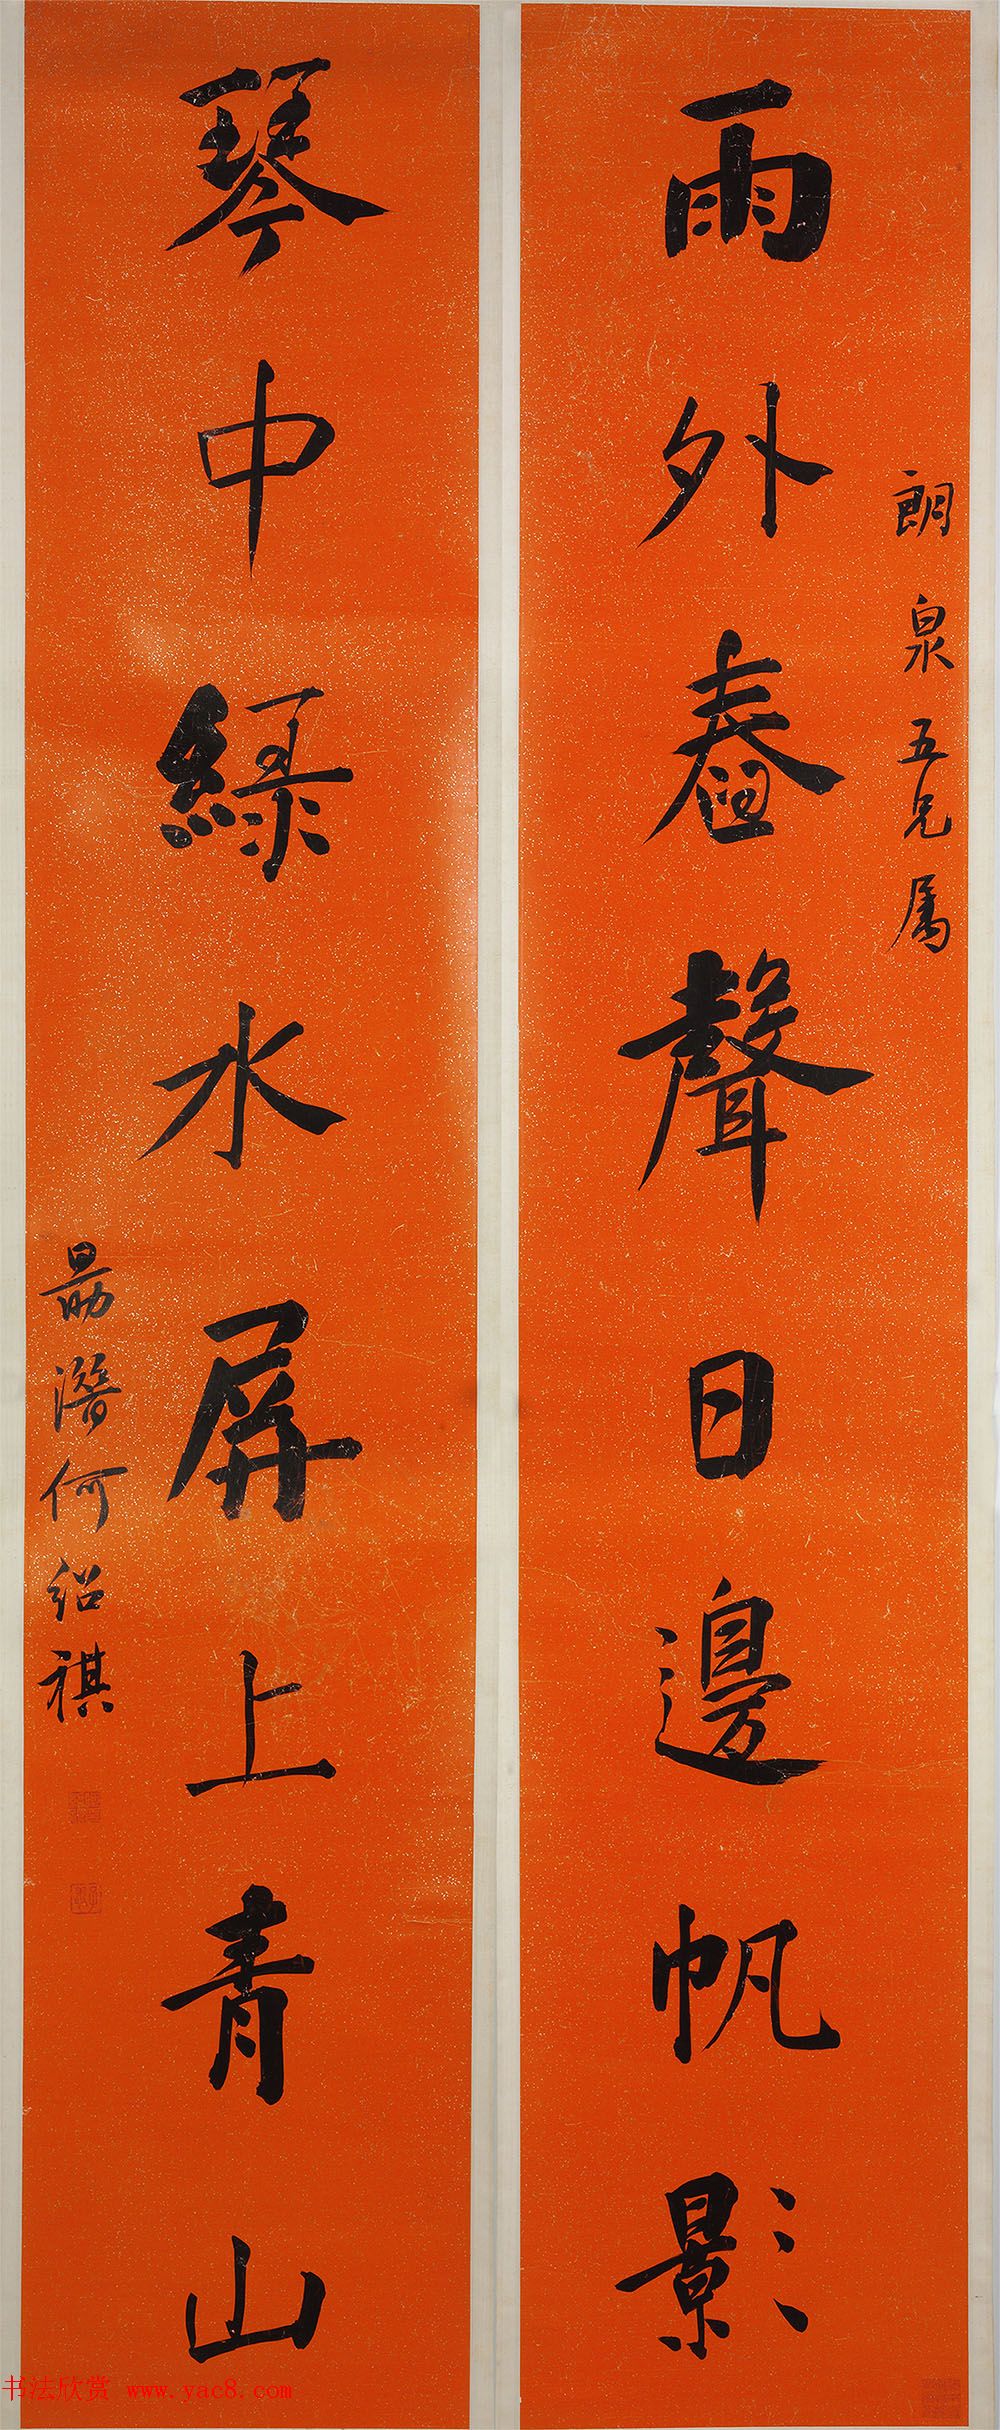 朗泉五兄属
雨外舂聲日邊帆影
琴中緑水屏上青山
勗潛何紹祺
书法欣赏 www.yac8.com